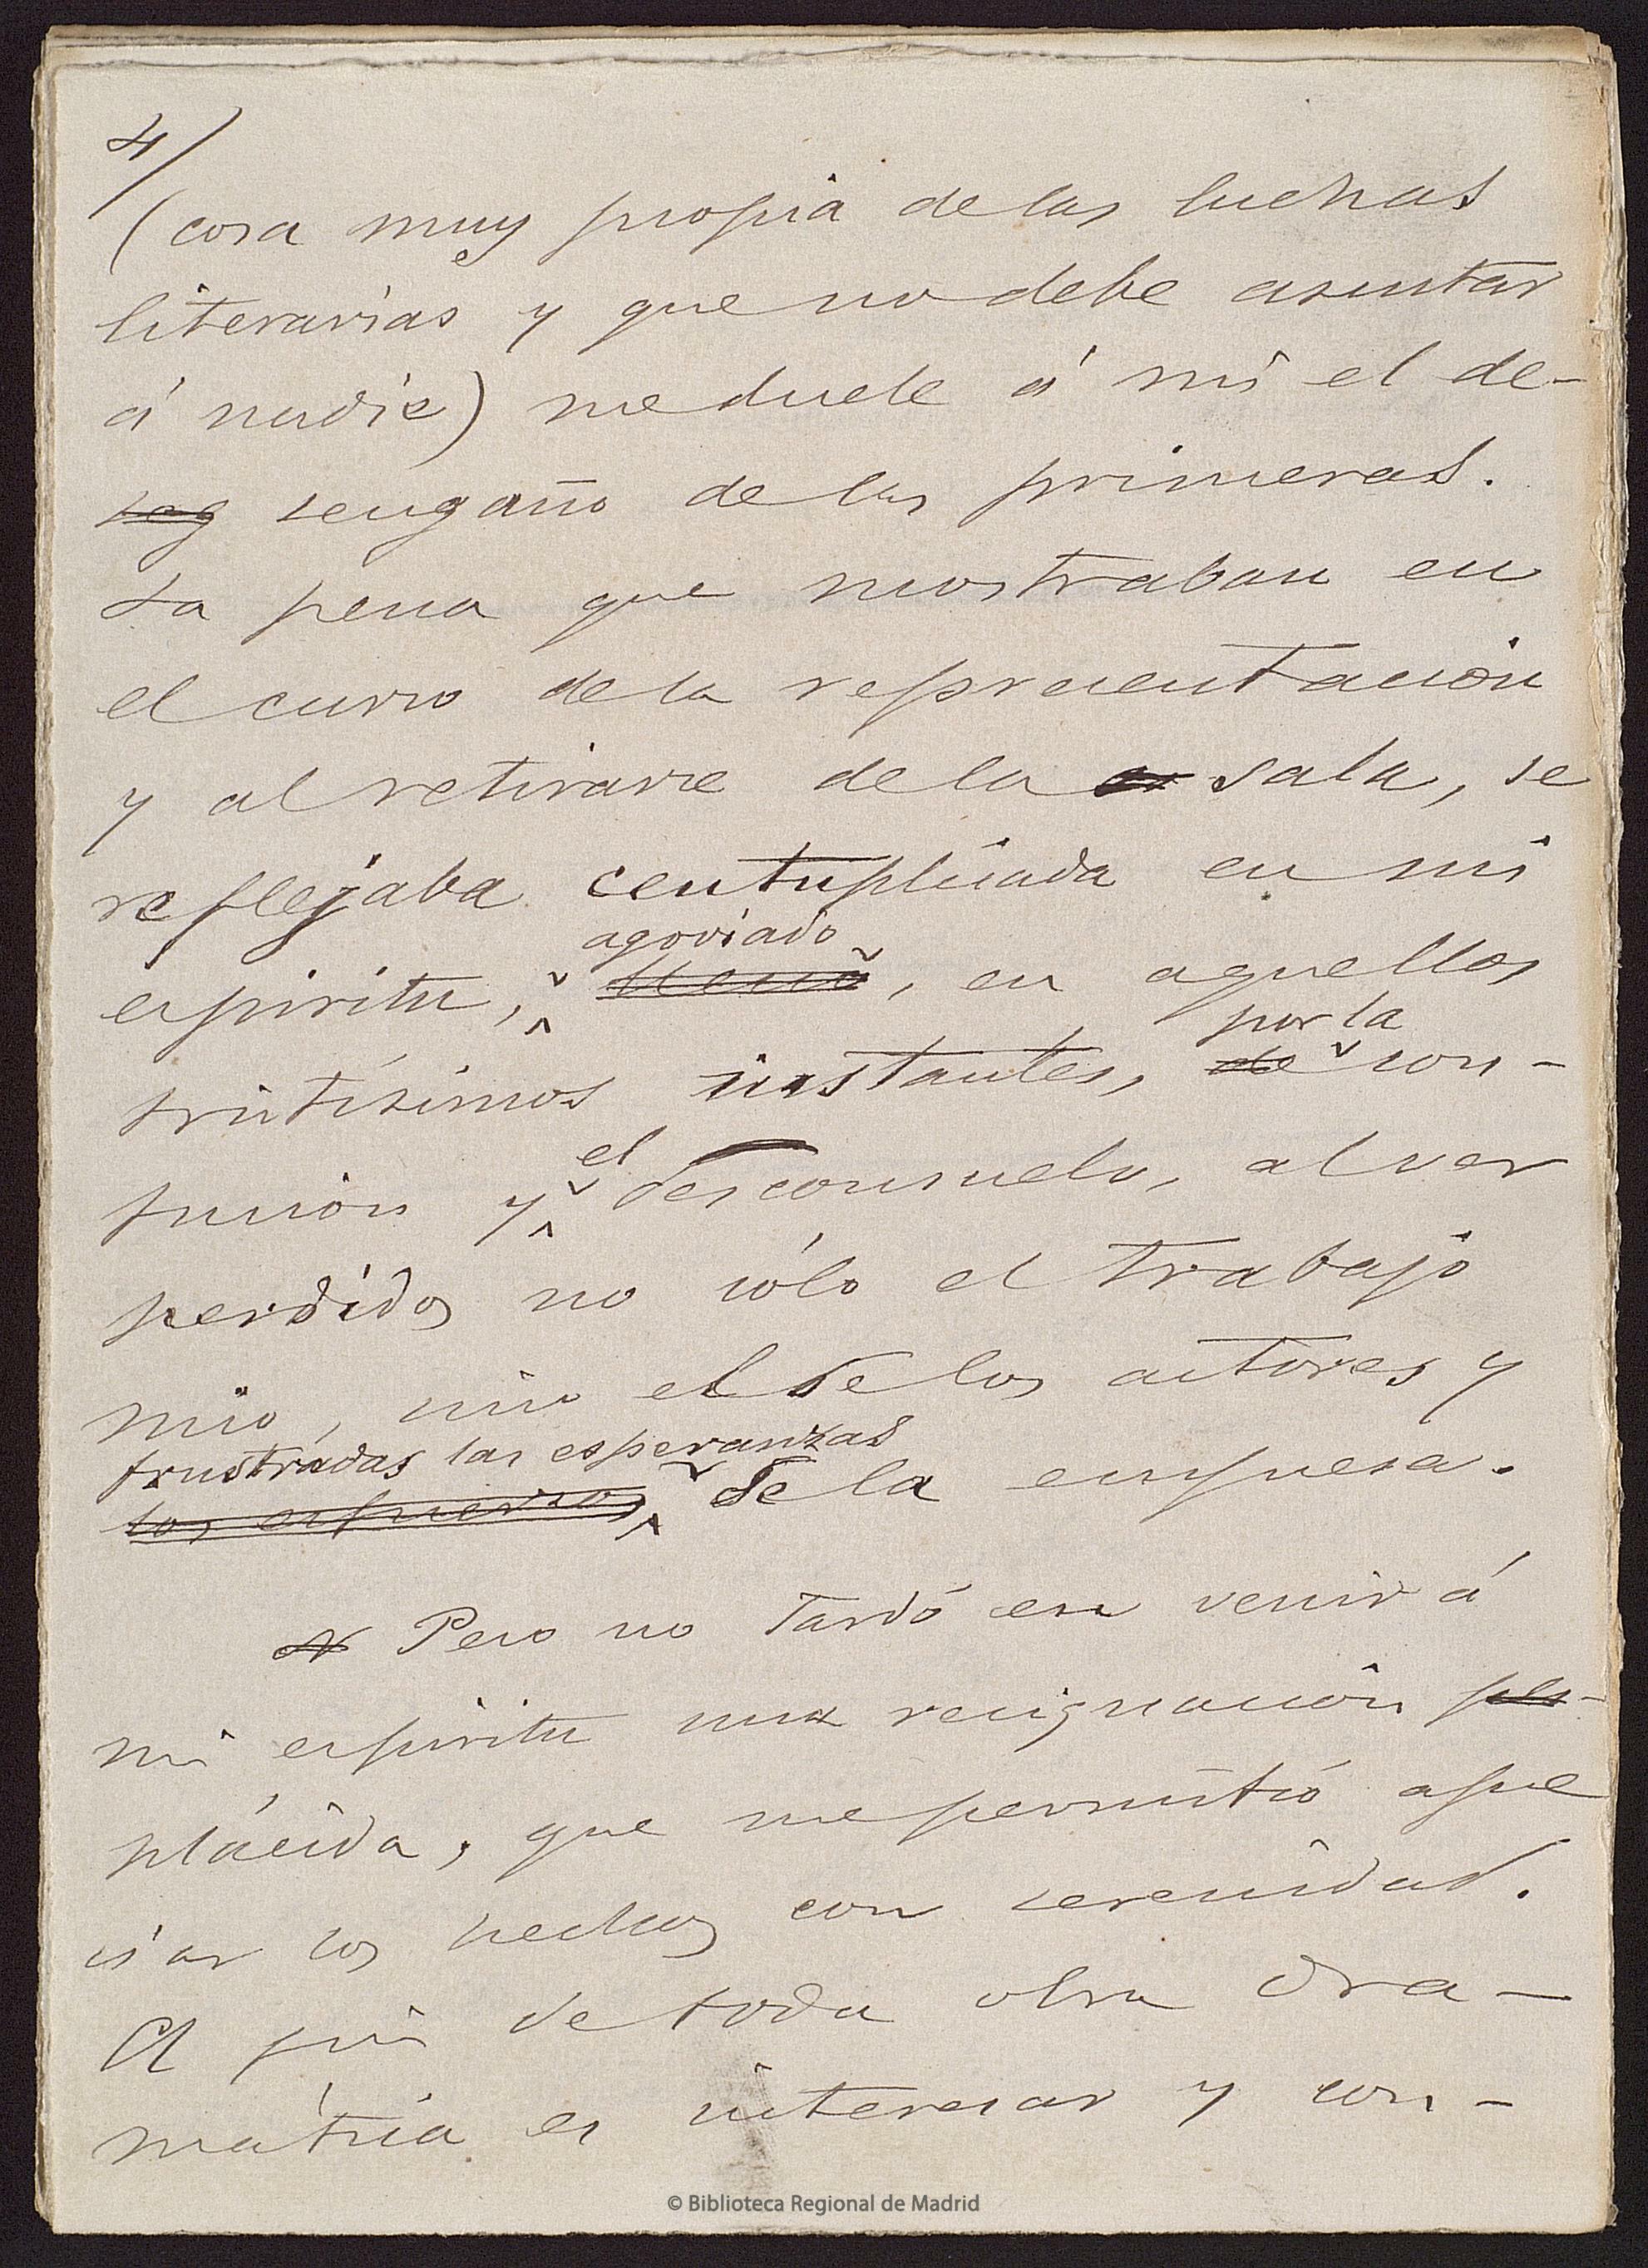 4/
(cosa muy propia de las luchas
literarias y que no debe asustar
á nadie) me duele á mí el de-
seg sengaño de las primeras.
La pena que mostraban en
el curso de la representación
y al retirarse de la sala, se
reflejaba centuplicada en mi
agoviado
espíritu, lleno, en aquellos
por la
tristísimos instantes, de con-
el
fusión y desconsuelo, al ver
perdidos no sólo el trabajo
mio, sino el de los actores y
frustradas las esperanzas
los esfuerzos de la empresa.
N Pero no tardó en venir á
mi espíritu una resignación pla-
plácida, que me permitió apre
ciar los hechos con serenidad.
El fin de toda obra dra-
mática es interesar y con-
© Biblioteca Regional de Madrid